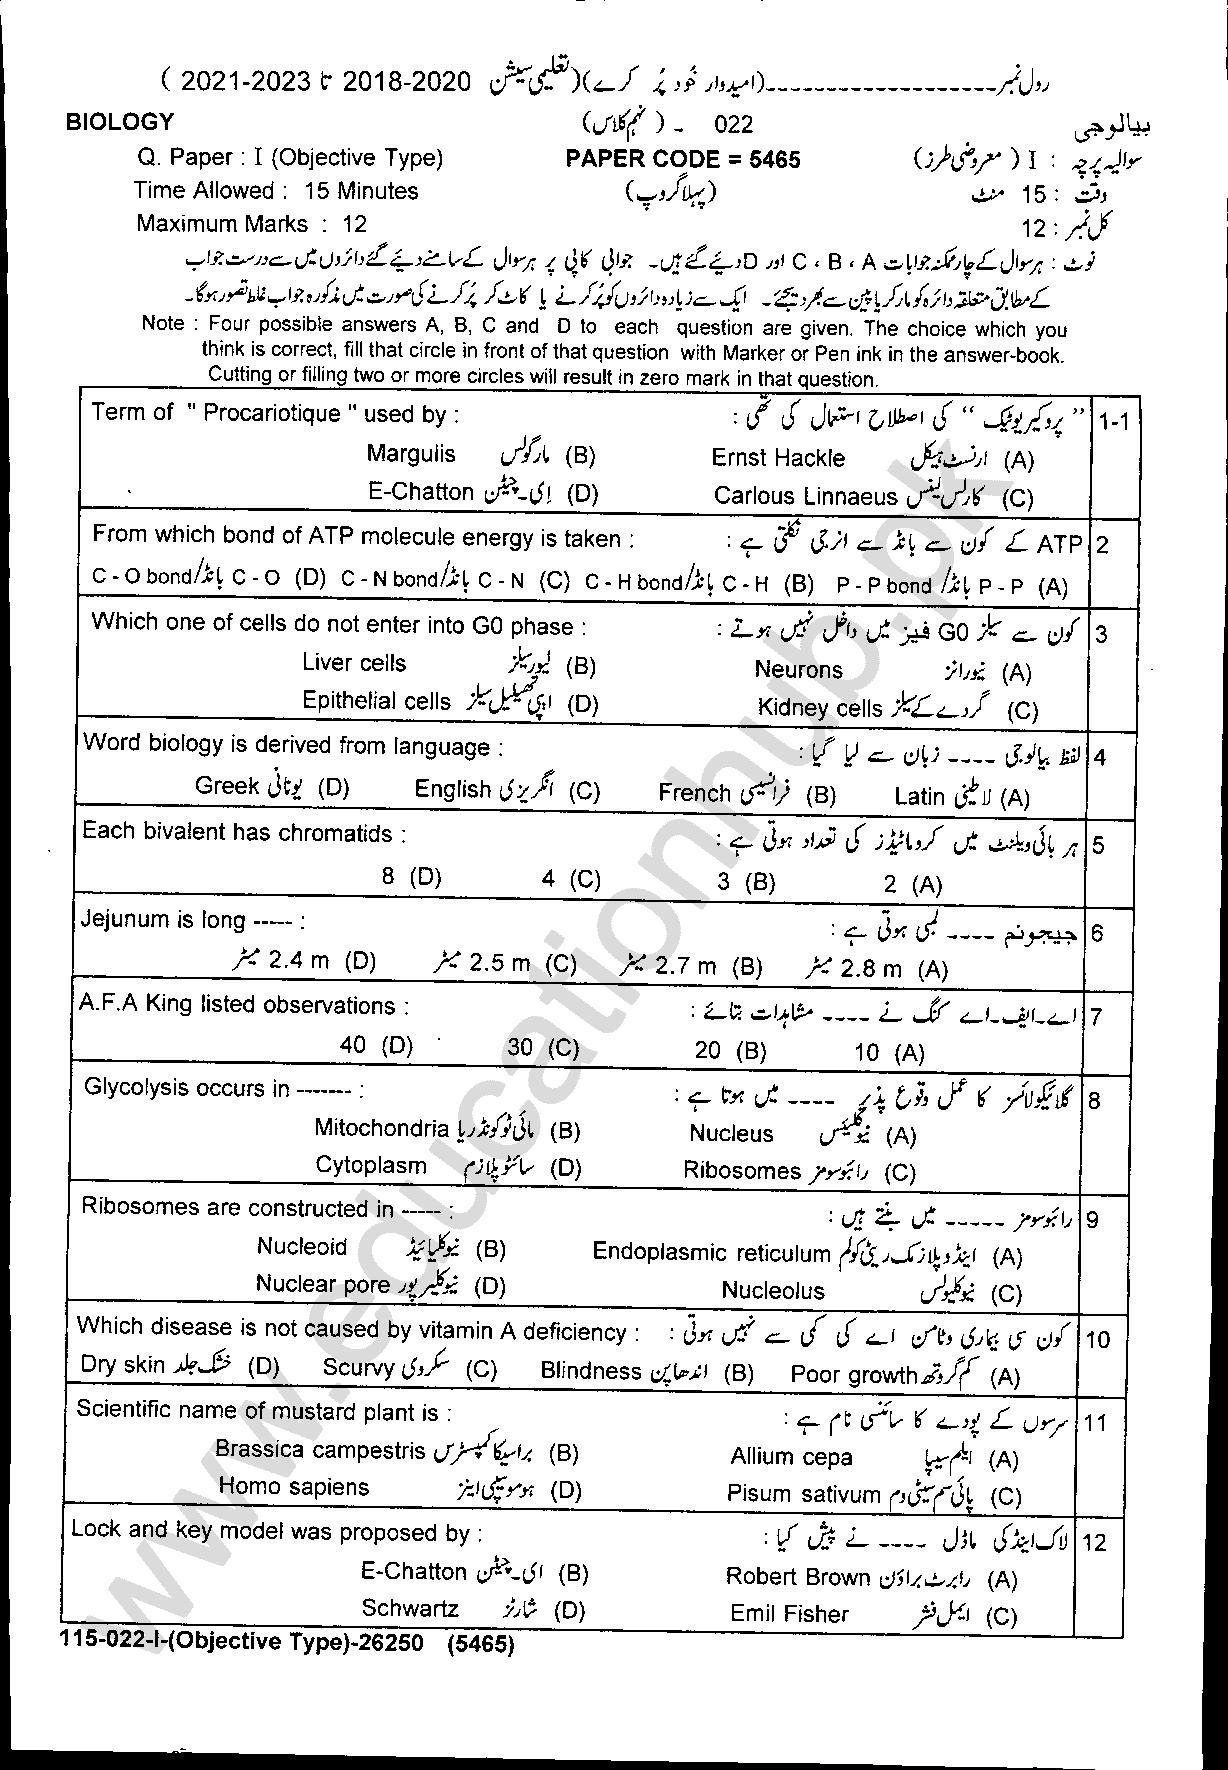 رول نمبر---------------------(امیدوار خود پُر کرے)(تعلیمی سیشن 2018-2020 تا 2021-2023 )
BIOLOGY 022 - ( نہم کلاس) بیالوجی
Q. Paper : I (Objective Type) PAPER CODE = 5465 سوالیہ پرچہ : I ( معروضی طرز)
Time Allowed : 15 Minutes (پہلا گروپ) وقت : 15 منٹ
Maximum Marks : 12 کل نمبر : 12
نوٹ : ہر سوال کے چار ممکنہ جوابات C ، B ، A اور D دیئے گئے ہیں۔ جوابی کاپی پر ہر سوال کے سامنے دیئے گئے دائروں میں سے درست جواب
کے مطابق متعلقہ دائرہ کو مارکر یا پین سے بھر دیجئے۔ ایک سے زیادہ دائروں کو پُر کرنے یا کاٹ کر پُر کرنے کی صورت میں مذکورہ جواب غلط تصور ہوگا۔
Note : Four possible answers A, B, C and D to each question are given. The choice which you
think is correct, fill that circle in front of that question with Marker or Pen ink in the answer-book.
Cutting or filling two or more circles will result in zero mark in that question.
Term of " Procariotique " used by : " پروکیریوٹیک " کی اصطلاح استعمال کی تھی : 1-1
Margulis مارگولس (B) Ernst Hackle ارنسٹ ہیکل (A)
E-Chatton ای۔چیٹن (D) Carlous Linnaeus کارلس لینیس (C)
From which bond of ATP molecule energy is taken : ATP کے کون سے بانڈ سے انرجی نکلتی ہے : 2
C - O bond/بانڈ C - O (D) C - N bond/بانڈ C - N (C) C - H bond/بانڈ C - H (B) P - P bond /بانڈ P - P (A)
Which one of cells do not enter into G0 phase : کون سے سیلز G0 فیز میں داخل نہیں ہوتے : 3
Liver cells لیور سیلز (B) Neurons نیورانز (A)
Epithelial cells اپی تھیلیل سیلز (D) Kidney cells گردے کے سیلز (C)
Word biology is derived from language : لفظ بیالوجی ---- زبان سے لیا گیا : 4
Greek یونانی (D) English انگریزی (C) French فرانسیسی (B) Latin لاطینی (A)
Each bivalent has chromatids : ہر بائی ویلنٹ میں کروماٹیڈز کی تعداد ہوتی ہے : 5
8 (D) 4 (C) 3 (B) 2 (A)
Jejunum is long ----- : جیجونم ---- لمبی ہوتی ہے : 6
2.4 m میٹر (D) 2.5 m میٹر (C) 2.7 m میٹر (B) 2.8 m میٹر (A)
A.F.A King listed observations : اے۔ایف۔اے کنگ نے ---- مشاہدات بتائے : 7
40 (D) 30 (C) 20 (B) 10 (A)
Glycolysis occurs in ------- : گلائیکولائسز کا عمل وقوع پذیر ---- میں ہوتا ہے : 8
Mitochondria مائی ٹوکونڈریا (B) Nucleus نیوکلیئس (A)
Cytoplasm سائٹوپلازم (D) Ribosomes رائبوسومز (C)
Ribosomes are constructed in ----- : رائبوسومز ----- میں بنتے ہیں : 9
Nucleoid نیوکلیائیڈ (B) Endoplasmic reticulum اینڈوپلازمک ریٹی کولم (A)
Nuclear pore نیوکلیر پور (D) Nucleolus نیوکلیولس (C)
Which disease is not caused by vitamin A deficiency : کون سی بیماری وٹامن اے کی کمی سے نہیں ہوتی : 10
Dry skin خشک جلد (D) Scurvy سکروی (C) Blindness اندھا پن (B) Poor growth کم گروتھ (A)
Scientific name of mustard plant is : سرسوں کے پودے کا سائنسی نام ہے : 11
Brassica campestris براسیکا کمپیسٹرس (B) Allium cepa ایلیم سیپا (A)
Homo sapiens ہومو سیپی اینز (D) Pisum sativum پائی سم سیٹی وم (C)
Lock and key model was proposed by : لاک اینڈ کی ماڈل ---- نے پیش کیا : 12
E-Chatton ای۔چیٹن (B) Robert Brown رابرٹ براؤن (A)
Schwartz شارٹز (D) Emil Fisher ایمل فشر (C)
115-022-I-(Objective Type)-26250 (5465)
www.educationhub.pk